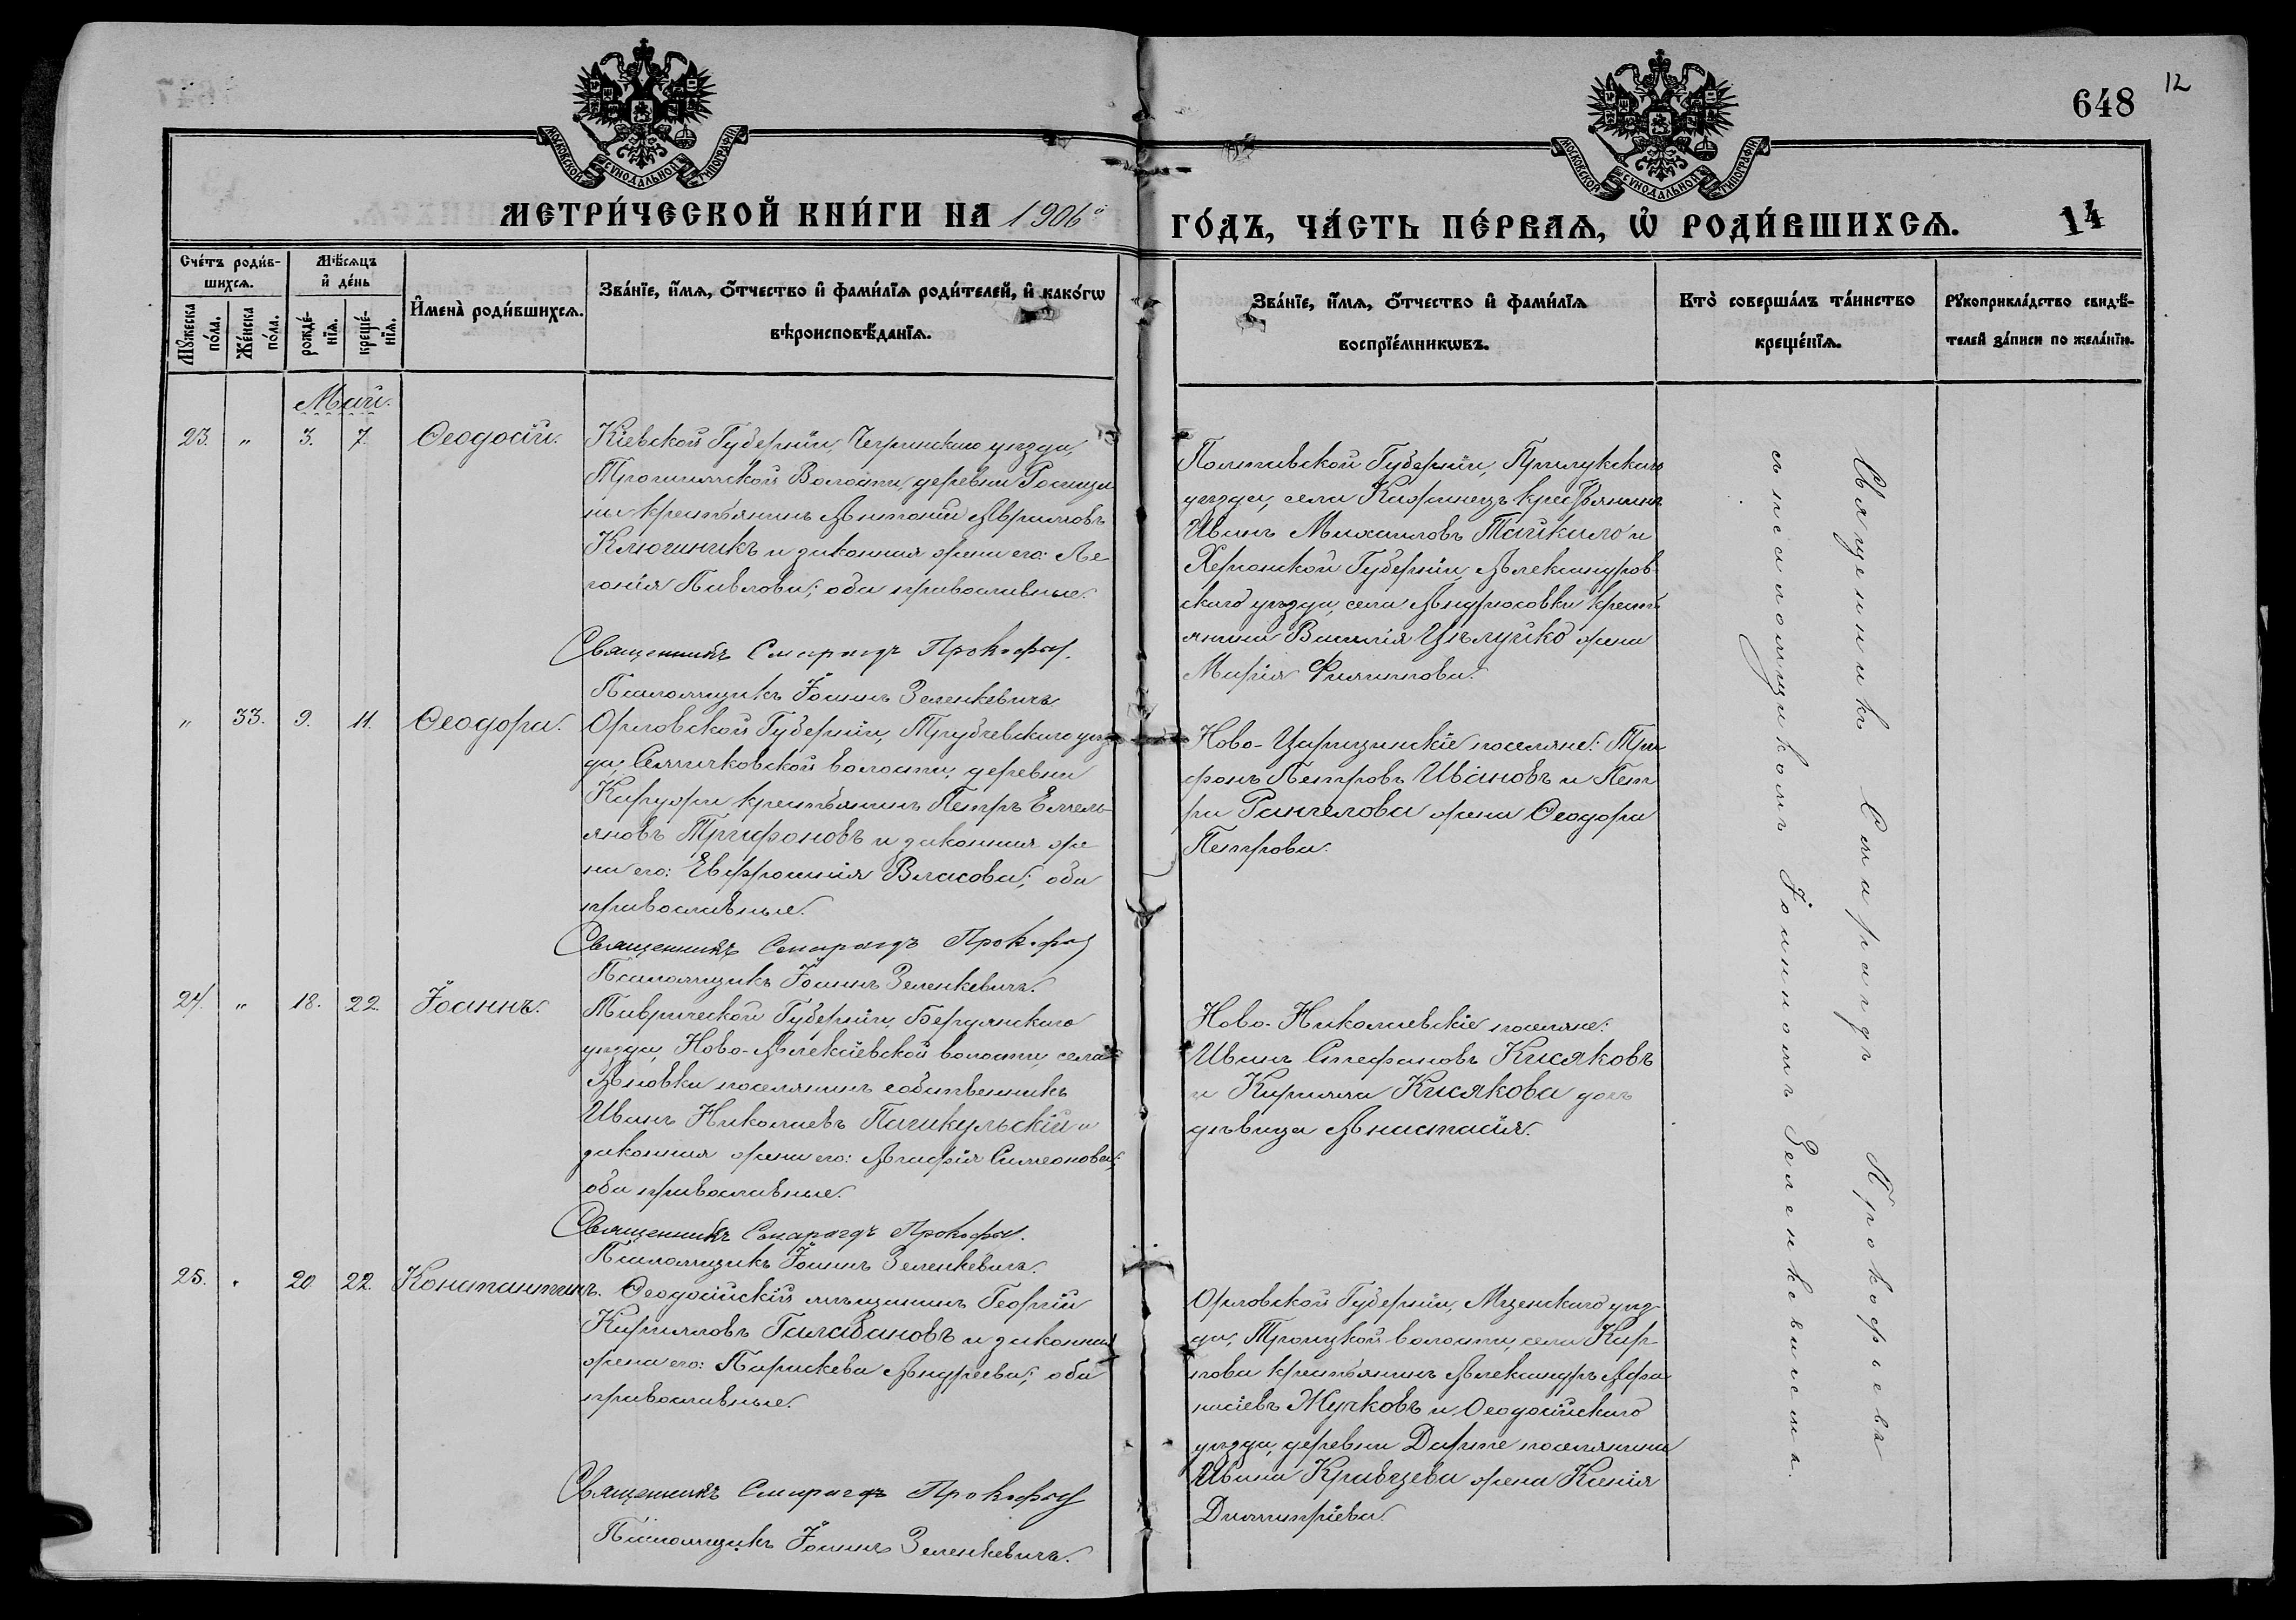 648
12
МОСКОВСКОЙ СУНОДАЛЬНОЙ ТИПОГРАФІИ
МОСКОВСКОЙ СУНОДАЛЬНОЙ ТИПОГРАФІИ
МЕТРИ́ЧЕСКОЙ КНИ́ГИ НА 1906й
ГО́ДЪ, ЧА́СТЬ ПЕ́РВАѦ, Ѡ҆ РОДИ́ВШИХСѦ.
14
Сче́тъ роди́в-
шихсѧ.
Мѣ́сѧцъ
и҆ де́нь
Мꙋ́жеска
по́ла.
Же́нска
по́ла.
рожде́-
нїѧ.
креще́-
нїѧ.
И҆мена̀ роди́вшихсѧ.
Зва́нїе, и҆́мѧ, ѻ҆́тчество и҆ фами́лїѧ роди́телей, и҆ како́гѡ
вѣроисповѣ́данїѧ.
Зва́нїе, и҆́мѧ, ѻ҆́тчество и҆ фами́лїѧ
воспрїе́мникѡвъ.
Кто̀ соверша́лъ та́инство
креще́нїѧ.
Рꙋкоприкла́дство свидѣ́-
телей за́писи по жела́нїю.
Май.
23. " 3. 7. Ѳеодосій.
Кіевской Губерніи, Чегринскаго уѣзда,
Волости, деревни Росоши
ны крестьянинъ Антоній
Ключникъ и законная жена его:
Павлова; оба православные.
Священникъ Смарагдъ Прокофьев
Псаломщикъ Іоаннъ Зеленкевичъ.
Полтавской Губерніи, Прилукскаго
уѣзда, села крестьянинъ
Иванъ Михаиловъ Тайкало и
Херсонской Губерніи, Александров-
скаго уѣзда, села Андрюсовки крестъ
янина Василія Цѣлуйко жена
Марія Филиппова.
" 33. 9. 11. Ѳеодора.
Орловской Губерніи, Трубчевскаго уѣз-
да, Селичковской волости, деревни
крестьянинъ Петръ Емель-
яновъ Трифоновъ и законная же
на его: Евфросинія Власова; оба
православные.
Священникъ Смарагдъ Прокофьев
Псаломщикъ Іоаннъ Зеленкевичъ.
Ново-Царицинскіе поселяне: Три
фонъ Петровъ Ивановъ и Пет
ра Рангелова жена Ѳеодора
Петрова.
24. " 18. 22. Іоаннъ.
Таврической Губерніи, Бердянскаго
уѣзда, Ново-Алексіевской волости, села
Ановки поселянинъ собственникъ
Иванъ Николаевъ Пачикульскій и
законная жена его: Агафія Симеонова;
оба православные.
Священникъ Смарагдъ Прокофьев
Псаломщикъ Іоаннъ Зеленкевичъ.
Ново-Николаевскіе поселяне:
Иванъ Стефановъ Кисяковъ
и Кирилла Кисякова дочь
дѣвица Анастасія.
25. " 20 22. Константинъ.
Ѳеодосійскій мѣщанинъ Георгій
Кирилловъ Галабановъ и законная
жена его: Параскева Андреева; оба
православные.
Священникъ Смарагдъ Прокофьев
Псаломщикъ Іоаннъ Зеленкевичъ.
Орловской Губерніи, Мценскаго уѣз-
да, Троицкой волости, села Кар
пова крестьянинъ Александръ Афа
насіевъ Жучковъ и Ѳеодосійскаго
уѣзда, деревни Дарте поселянина
Ивана Кравцева жена Ксенія
Димитріева.
Священникъ Смарагдъ Прокофьевъ
съ псаломщикомъ Іоанномъ Зеленкевичемъ.